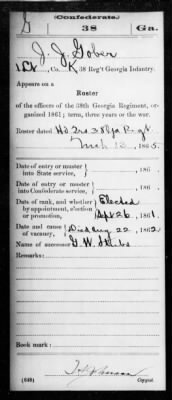 (Confederate.)
G 38 Ga.
J. J. Gober
1 Lt, Co. K, 38 Reg't Georgia Infantry.
Appears on a
Roster
of the officers of the 38th Georgia Regiment, organized 1861; term, three years or the war.
Roster dated Hd Qrs 38 Ga Regt
Mch 13, 1865.
Date of entry or muster into State service, , 186 .
Date of entry or muster into Confederate service, , 186 .
Date of rank, and whether by appointment, election or promotion, Elected
Sept 26, 1861.
Date and cause of vacancy, Died Aug 22, 1862
Name of successor G. W. Stubbs
Remarks:
Book mark:
(639)
Copyist.